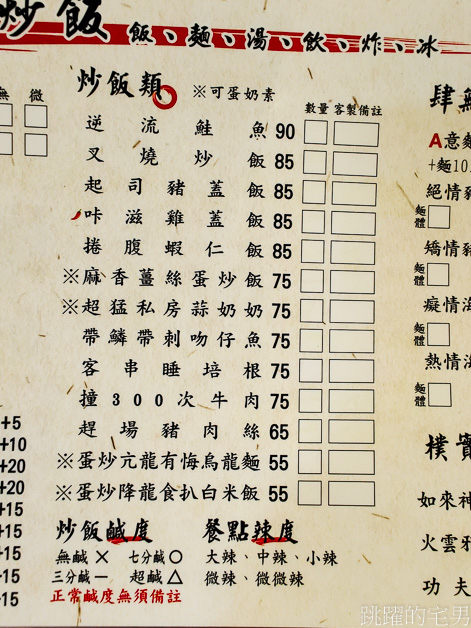 炒飯
飯、麵、湯、飲、炸、冰
無 微
炒飯類 ※可蛋奶素
數量 客製備註
逆流鮭魚 90
叉燒炒飯 85
起司豬蓋飯 85
咔滋雞蓋飯 85
捲腹蝦仁飯 85
※麻香薑絲蛋炒飯 75
※超猛私房蒜奶奶 75
帶鱗帶刺吻仔魚 75
客串睡培根 75
撞300次牛肉 75
趕場豬肉絲 65
※蛋炒亢龍有悔烏龍麵 55
※蛋炒降龍食扒白米飯 55
炒飯鹹度
無鹹✕ 七分鹹○
三分鹹一 超鹹△
正常鹹度無須備註
餐點辣度
大辣、中辣、小辣
微辣、微微辣
+5
+10
+20
+20
+15
+15
+15
+15
+15
肆
A意麵
+麵10
絕情豬
麵體
矯情豬
麵體
癡情海
麵體
熱情海
麵體
樸實
如來神
火雲邪
功夫
跳躍的宅男